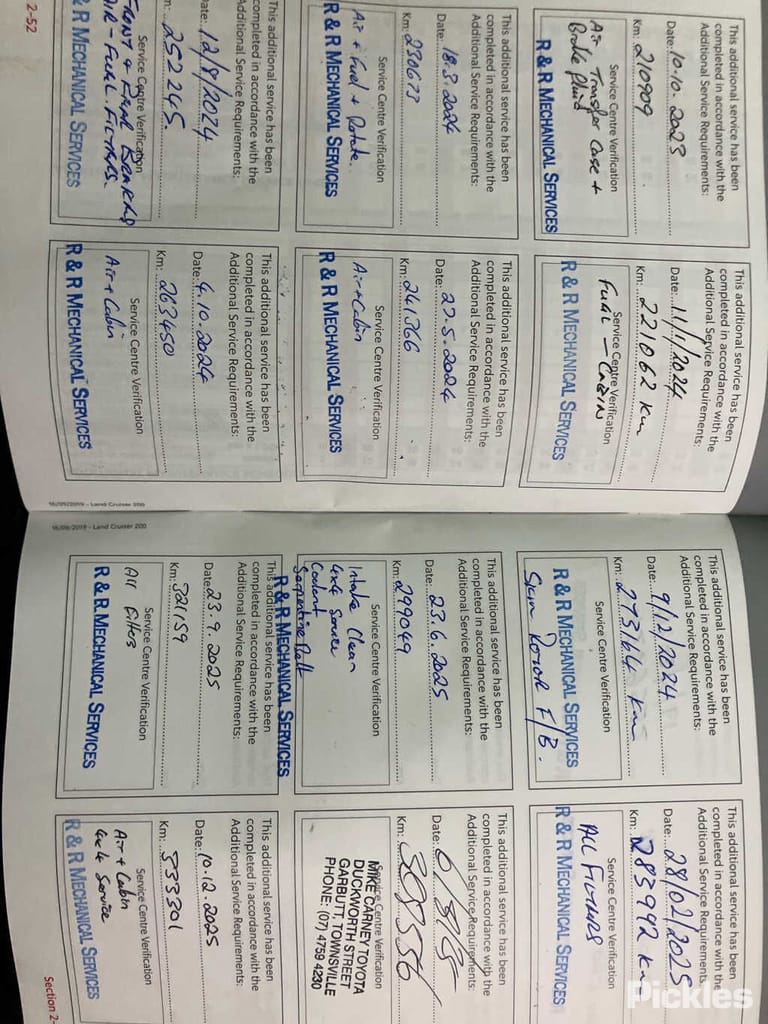 This additional service has been
completed in accordance with the
Additional Service Requirements:
Date: 10.10.2023
Km: 210909
Service Centre Verification
Air Transfer Case +
Brake Fluid
R & R MECHANICAL SERVICES
This additional service has been
completed in accordance with the
Additional Service Requirements:
Date: 11/1/2024
Km: 221062 Km
Service Centre Verification
FUEL - CABIN
R & R MECHANICAL SERVICES
This additional service has been
completed in accordance with the
Additional Service Requirements:
Date: 18.3.2024
Km: 230673
Service Centre Verification
Air + Fuel + Rotate.
R & R MECHANICAL SERVICES
This additional service has been
completed in accordance with the
Additional Service Requirements:
Date: 27.5.2024
Km: 241366
Service Centre Verification
Air + Cabin
R & R MECHANICAL SERVICES
This additional service has been
completed in accordance with the
Additional Service Requirements:
Date: 12/8/2024
Km: 252245.
Service Centre Verification
FRONT +
AIR - FUEL. FILTERS.
R & R MECHANICAL SERVICES
This additional service has been
completed in accordance with the
Additional Service Requirements:
Date: 4.10.2024
Km: 263450
Service Centre Verification
Air + Cabin
R & R MECHANICAL SERVICES
2-52
16/09/2019 - Land Cruiser 200
16/09/2019 - Land Cruiser 200
This additional service has been
completed in accordance with the
Additional Service Requirements:
Date: 9/12/2024
Km: 273164 Km
Service Centre Verification
R & R MECHANICAL SERVICES
Skim Rotor F/B.
This additional service has been
completed in accordance with the
Additional Service Requirements:
Date: 28/02/2025
Km: 283992 Km
Service Centre Verification
ALL FILTERS
R & R MECHANICAL SERVICES
This additional service has been
completed in accordance with the
Additional Service Requirements:
Date: 23.6.2025
Km: 299049
Service Centre Verification
Intake Clean
4x4 Service
Coolant
Serpentine Belt
R & R MECHANICAL SERVICES
This additional service has been
completed in accordance with the
Additional Service Requirements:
Date:
Km:
Service Centre Verification
MIKE CARNEY TOYOTA
DUCKWORTH STREET
GARBUTT, TOWNSVILLE
PHONE: (07) 4759 4200
This additional service has been
completed in accordance with the
Additional Service Requirements:
Date: 23.9.2025
Km: 321159
Service Centre Verification
All Filters
R & R MECHANICAL SERVICES
This additional service has been
completed in accordance with the
Additional Service Requirements:
Date: 10.12.2025
Km: 333301
Service Centre Verification
Air + Cabin
4x4 Service
R & R MECHANICAL SERVICES
Section 2-
Pickles